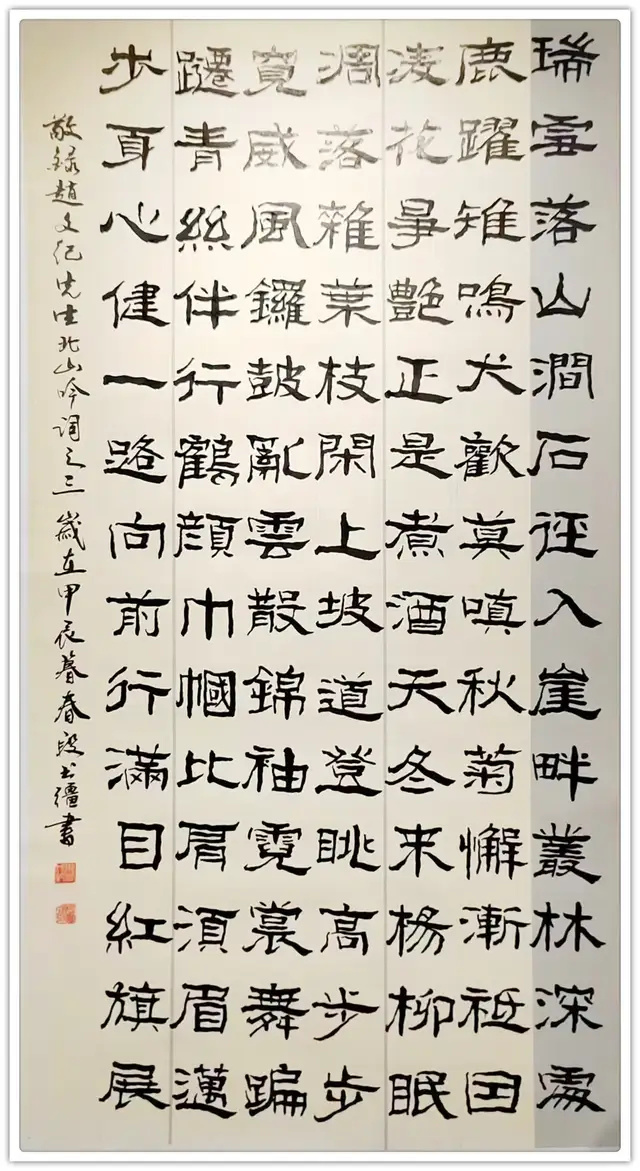 瑞雪落山澗石徑入崖畔叢林深處
鹿躍雉鳴犬歡莫嗔秋菊懈漸祗因
凌花爭艷正是煮酒天冬来楊柳眠
凋落雜葉枝閑上坡道登眺高步步
寬威風鑼鼓亂雲散錦袖霓裳舞蹁
躚青絲伴行鶴顔巾幗比肩須眉邁
步身心健一路向前行滿目紅旗展
敬録趙文纪先生北山吟詞之三 歲在甲辰暮春段士疆書